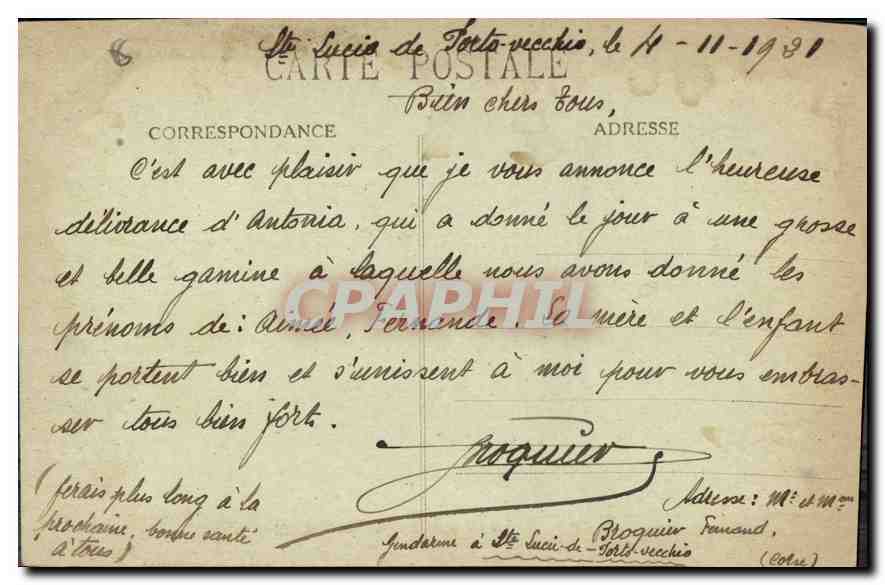 Ste Lucie de Porto-vecchio, le 4-11-1931
CARTE POSTALE
Bien chers Tous,
CORRESPONDANCE
ADRESSE
C'est avec plaisir que je vous annonce l'heureuse
délivrance d'Antonia, qui a donné le jour à une grosse
et belle gamine à laquelle nous avons donné les
prénoms de: Aimée, Fernande. La mère et l'enfant
se portent bien et s'unissent à moi pour vous embras-
ser tous bien fort.
CPAPHIL
Broquier
(ferais plus long à la
prochaine, bonne santé
à tous)
Adresse: Mr et Mme
Broquier Fernand,
Gendarme à Ste Lucie-de-Porto-vecchio
(Corse)